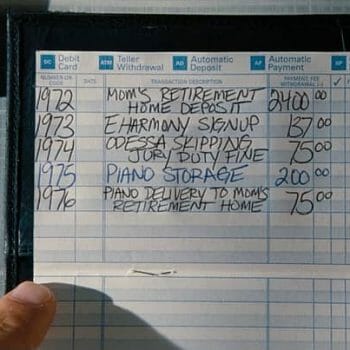 DC Debit Card
ATM Teller Withdrawal
AD Automatic Deposit
AP Automatic Payment
BP
NUMBER OR CODE DATE TRANSACTION DESCRIPTION PAYMENT FEE WITHDRAWAL (-) ✓
1972 MOM'S RETIREMENT HOME DEPOSIT 2400 00
1973 EHARMONY SIGNUP 137 00
1974 ODESSA SKIPPING JURY DUTY FINE 75 00
1975 PIANO STORAGE 200 00
1976 PIANO DELIVERY TO MOM'S RETIREMENT HOME 75 00